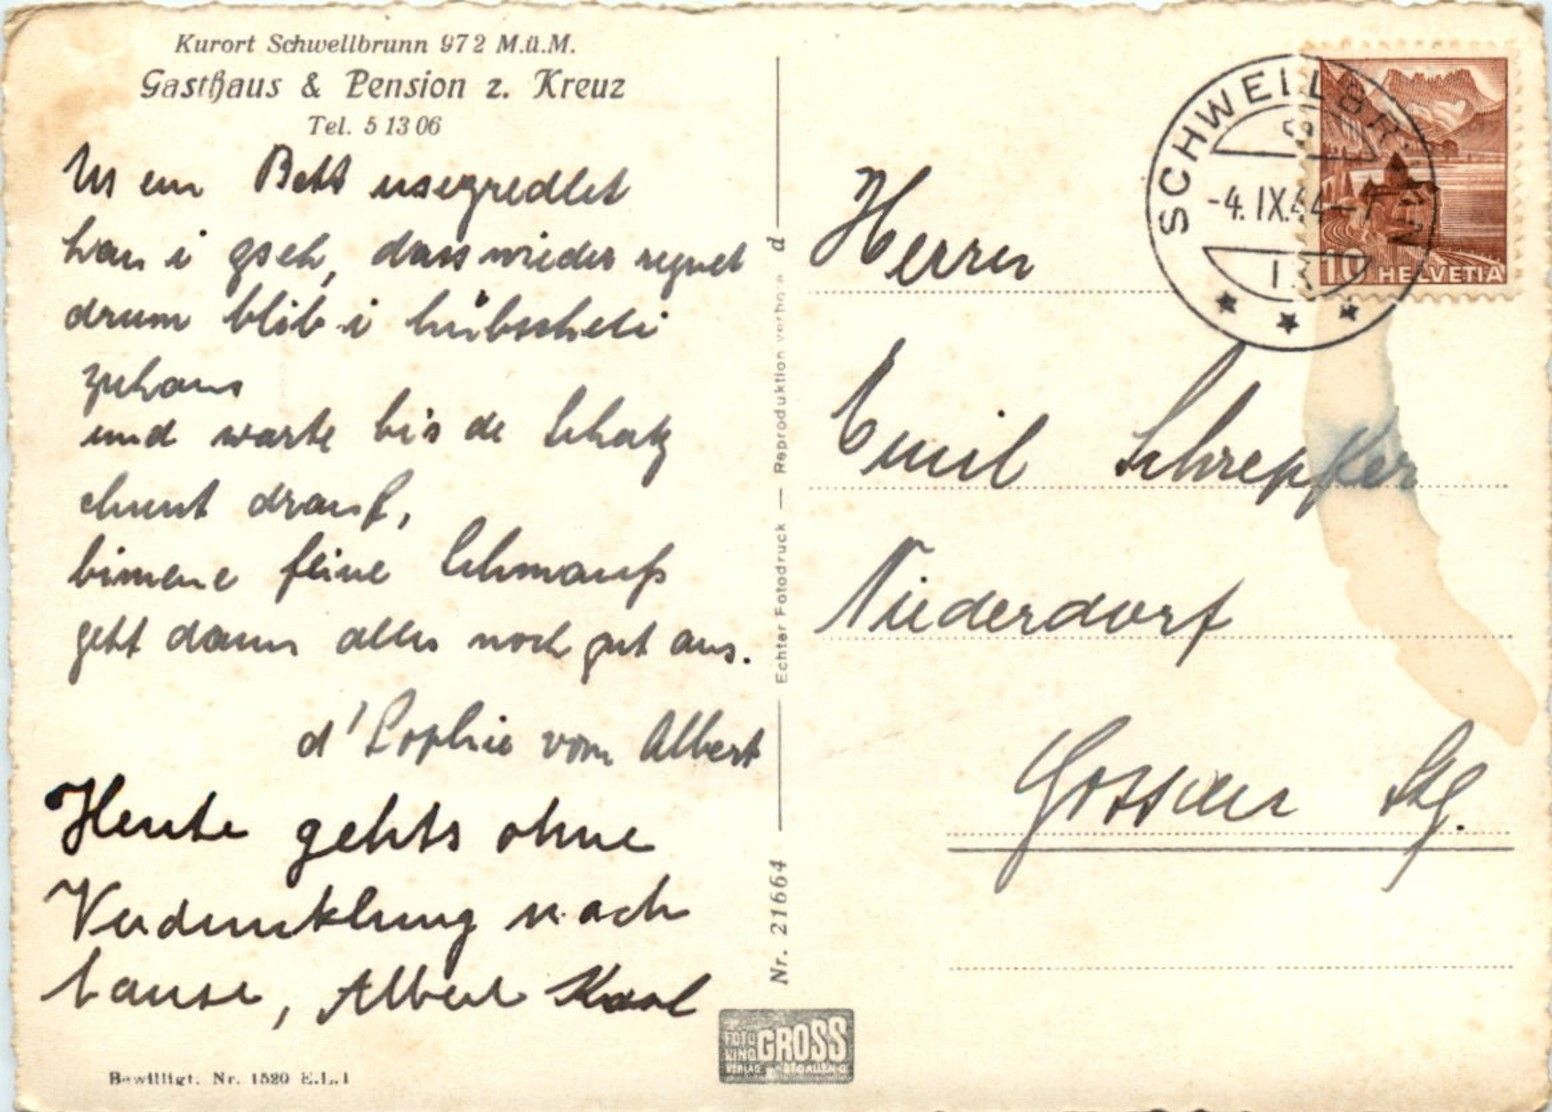 Kurort Schwellbrunn 972 M.ü.M.
Gasthaus & Pension z. Kreuz
Tel. 5 13 06
Us em Bett usegredlet
han i gseh, dass wieder regnet
drum blib i hübscheli
zuhaus
und warte bis de Schatz
chunt drauf,
bimene feine Schmauss
geht dann alles noch gut aus.
d'Sophie vom Albert
Heute gehts ohne
Verdunklung nach
hause, Albert Karl
Bewilligt. Nr. 1520 E.L.1
Nr. 21664 — Echter Fotodruck — Reproduktion verbo d
FOTO GROSS
VERLAG ST. GALLEN
SCHWELLBRUNN
-4. IX.44-
10 HELVETIA
Herrn
Emil Schrepfer
Niederdorf
Gossau Stg.